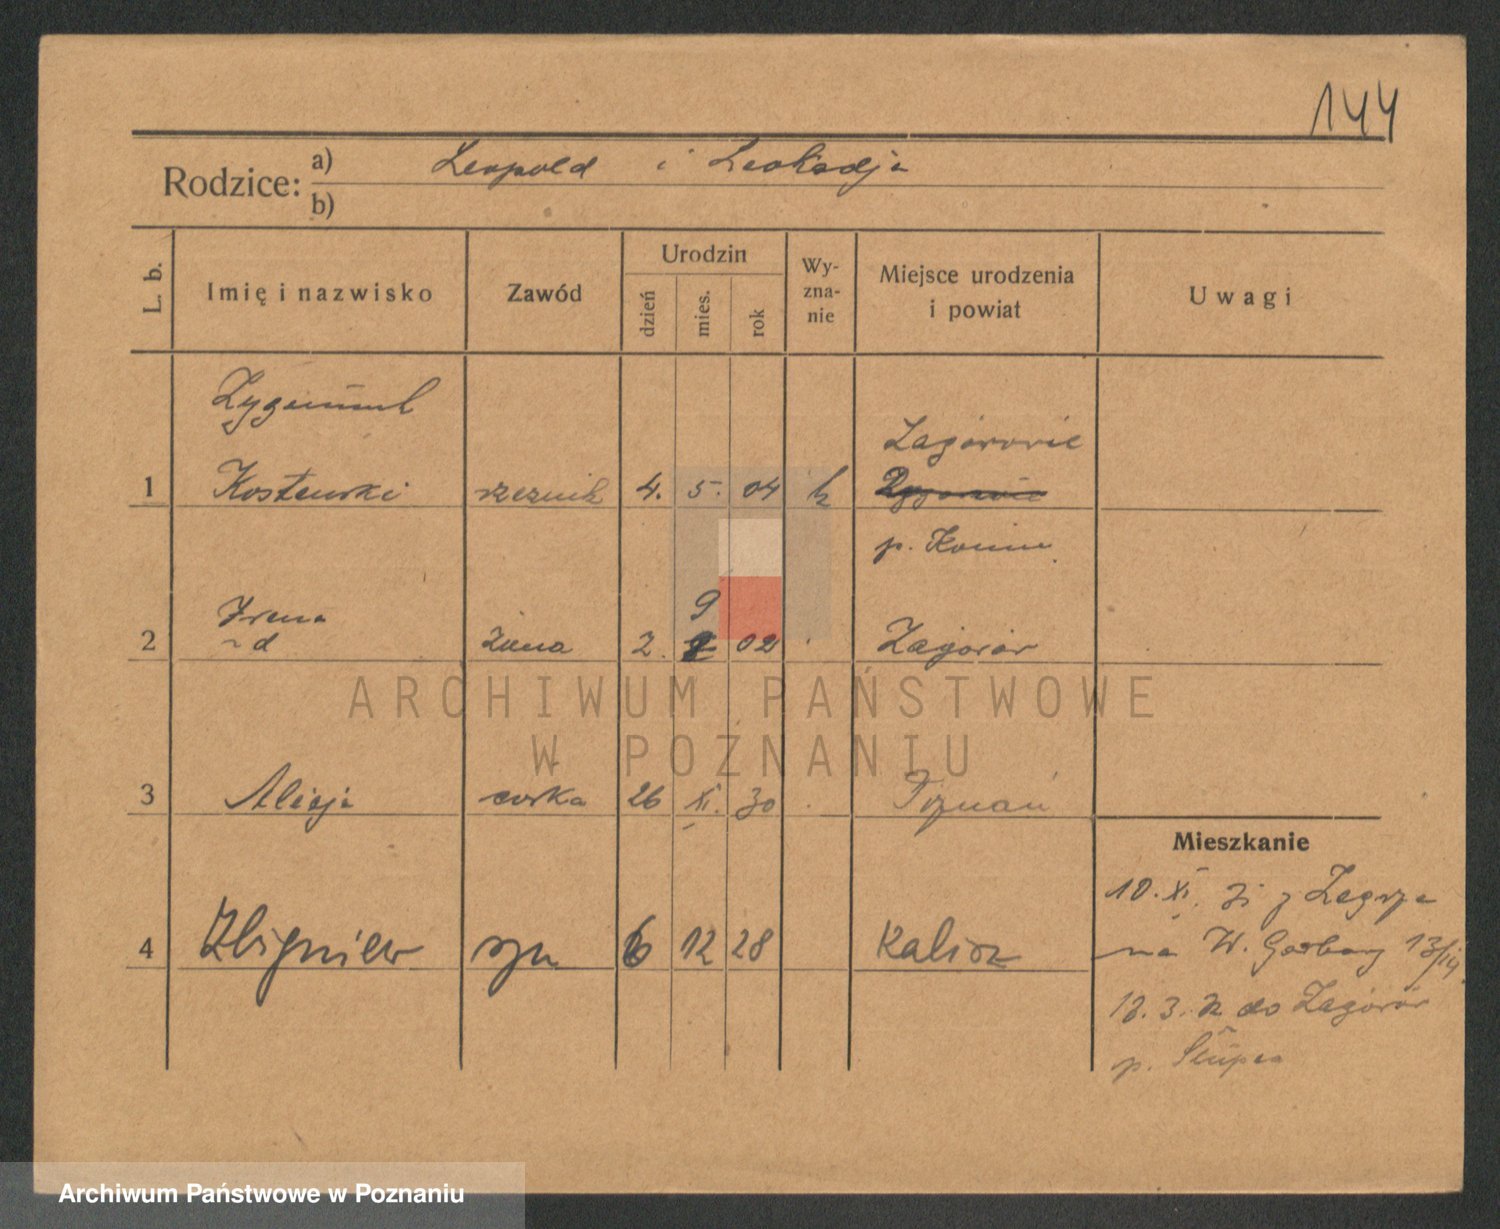 144
Rodzice: a) Leopold i Leokadja
b)
L. b.
Imię i nazwisko
Zawód
Urodzin
dzień
mies.
rok
Wy-
zna-
nie
Miejsce urodzenia
i powiat
Uwagi
Zygmunt
Zagórowie
1 Kostenski rzeznik 4. 5. 04 k
p. Konin
Irena
9
2 ~ d żona 2. 02 Zagórów
ARCHIWUM PAŃSTWOWE
W POZNANIU
3 Alicja corka 26 XI. 30 Poznań
Mieszkanie
10. XI. 31 z Zagorza
4 Zbigniew syn 6 12 28 Kalisz
na W. Garbary 13/14
13. 3. 32 do Zagórów
p. Słupca
Archiwum Państwowe w Poznaniu